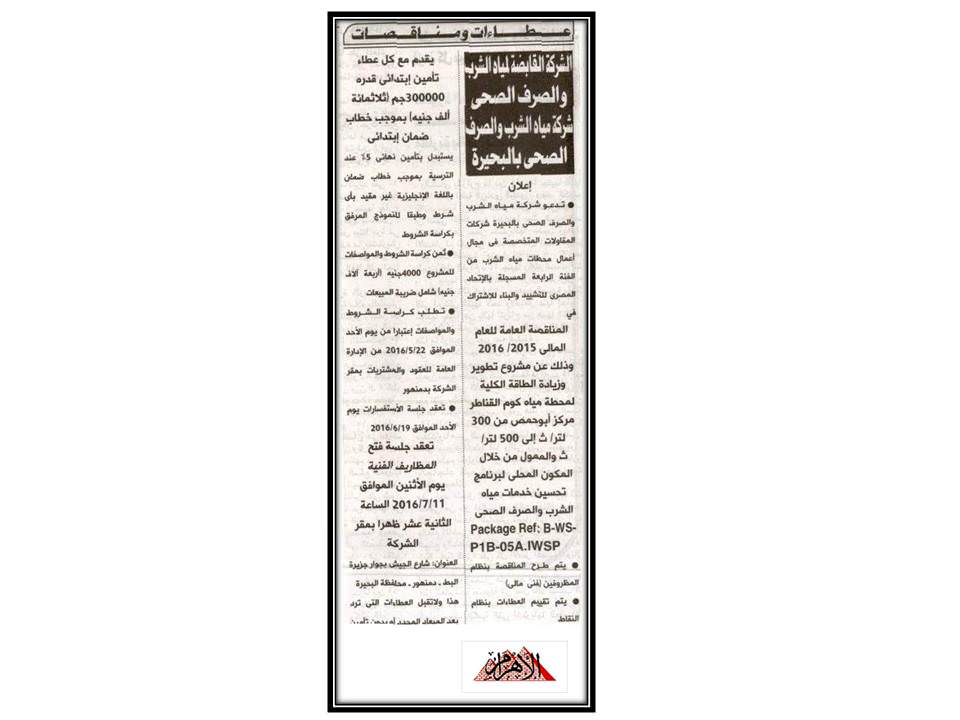 عطاءات ومناقصات
الشركة القابضة لمياه الشرب
والصرف الصحى
شركة مياه الشرب والصرف
الصحى بالبحيرة
إعلان
● تدعو شركة مياه الشرب
والصرف الصحى بالبحيرة شركات
المقاولات المتخصصة فى مجال
أعمال محطات مياه الشرب من
الفئة الرابعة المسجلة بالإتحاد
المصرى للتشييد والبناء للاشتراك
في
المناقصة العامة للعام
المالى 2015/ 2016
وذلك عن مشروع تطوير
وزيادة الطاقة الكلية
لمحطة مياه كوم القناطر
مركز أبوحمص من 300
لتر/ ث إلى 500 لتر/
ث والممول من خلال
المكون المحلى لبرنامج
تحسين خدمات مياه
الشرب والصرف الصحى
Package Ref: B-WS-
P1B-05A.IWSP
● يتم طرح المناقصة بنظام
المظروفين (فنى مالى)
● يتم تقييم العطاءات بنظام
النقاط
يقدم مع كل عطاء
تأمين إبتدائى قدره
300000جم (ثلاثمائة
ألف جنيه) بموجب خطاب
ضمان إبتدائى
يستبدل بتأمين نهائى 5٪ عند
الترسية بموجب خطاب ضمان
باللغة الإنجليزية غير مقيد بأى
شرط وطبقا للنموذج المرفق
بكراسة الشروط
● ثمن كراسة الشروط والمواصفات
للمشروع 4000جنيه (أربعة آلاف
جنيه) شامل ضريبة المبيعات
● تطلب كراسة الشروط
والمواصفات إعتبارا من يوم الأحد
الموافق 2016/5/22 من الإدارة
العامة للعقود والمشتريات بمقر
الشركة بدمنهور
● تعقد جلسة الأستفسارات يوم
الأحد الموافق 2016/6/19
تعقد جلسة فتح
المظاريف الفنية
يوم الأثنين الموافق
2016/7/11 الساعة
الثانية عشر ظهرا بمقر
الشركة
العنوان: شارع الجيش بجوار جزيرة
البط ـ دمنهور ـ محافظة البحيرة
هذا ولاتقبل العطاءات التى ترد
بعد الميعاد المحدد أو بدون تأمين
الأهرام